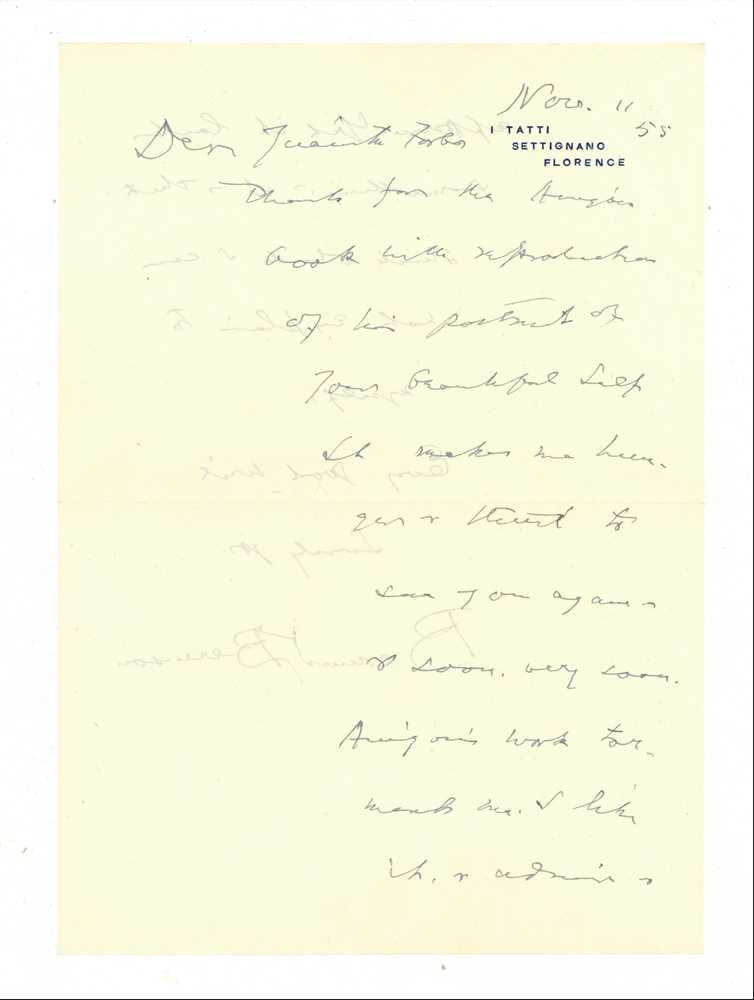 Nov. 11
55
I TATTI
SETTIGNANO
FLORENCE
Dear Juanita Forbes
Thanks for the Annigoni
book with reproduction
of his portrait of
your beautiful self
It makes me hun-
ger & thirst to
see you again &
& soon, very soon.
Annigoni's work tor-
ments me. I like
it, & admire &
Bernard Berenson